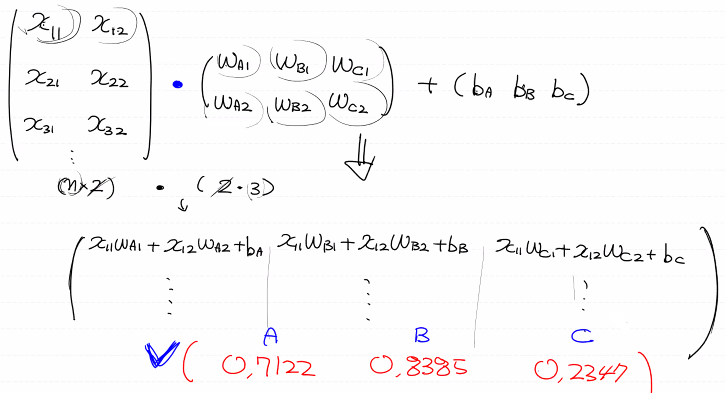 x₁₁ x₁₂
x₂₁ x₂₂
x₃₁ x₃₂
⋮
· 
W_A1 W_B1 W_C1
W_A2 W_B2 W_C2
+ (b_A b_B b_C)
⇓
(n×2) · (2·3)
x₁₁W_A1 + x₁₂W_A2 + b_A x₁₁W_B1 + x₁₂W_B2 + b_B x₁₁W_C1 + x₁₂W_C2 + b_C
⋮ ⋮ ⋮
A B C
(0,7122 0,8385 0,2347)